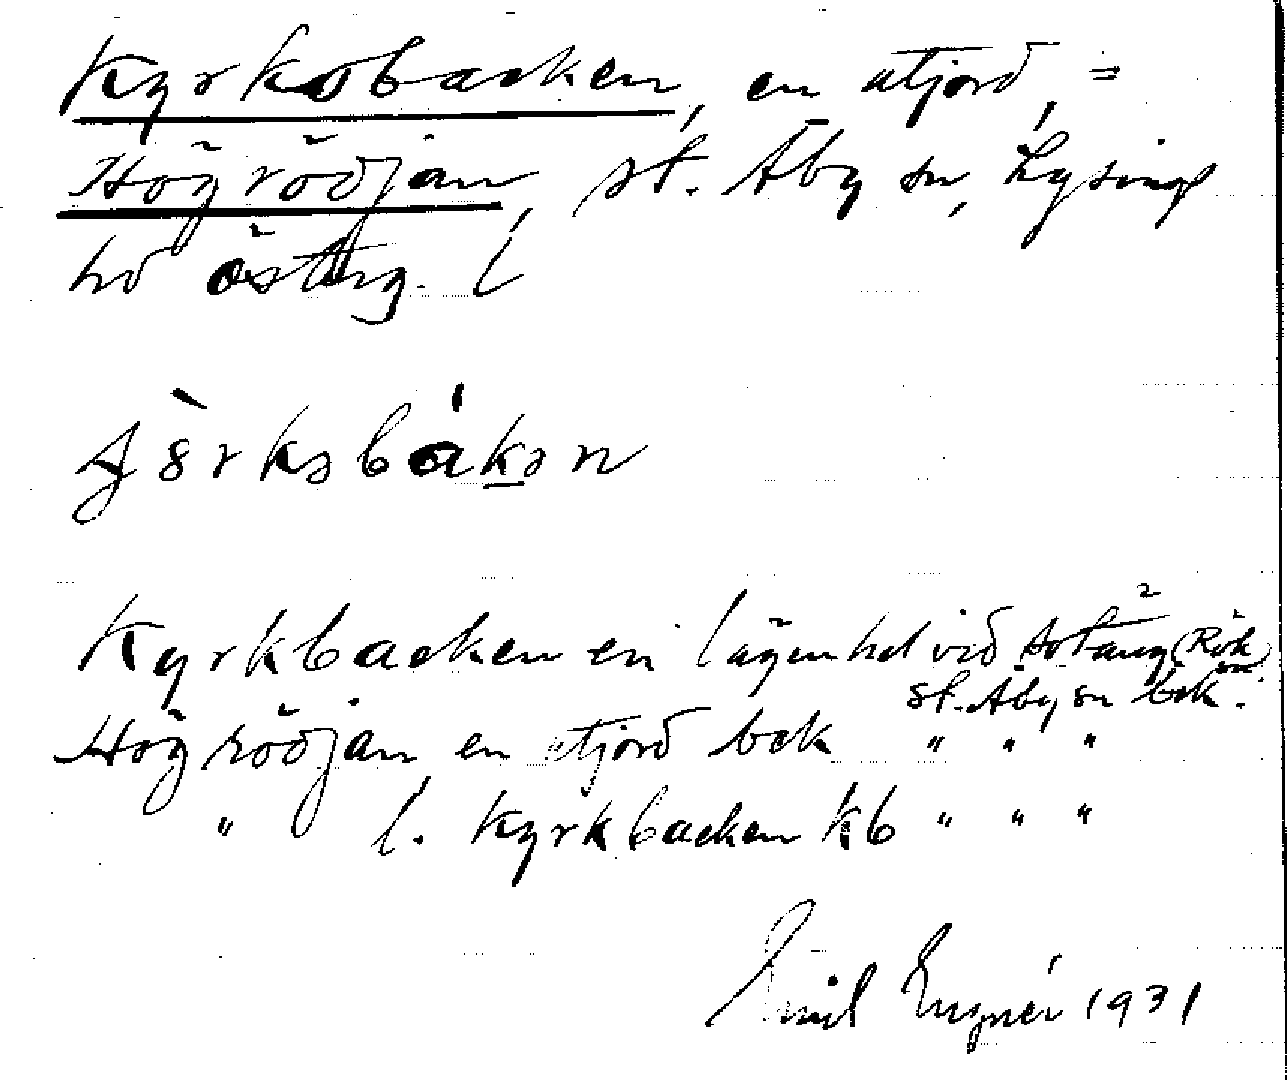 Kyrkobacken, en utjord, =
Högrödjan, st. Åby sn, Lysings
hd österg. l
Kyrkbacken en lägenhet vid Hotäng (Rök sn)
st. Åby sn bek.
Högrödjan en utjord bek " " "
" l. Kyrkbacken kb " " "
Emil Engnér 1931